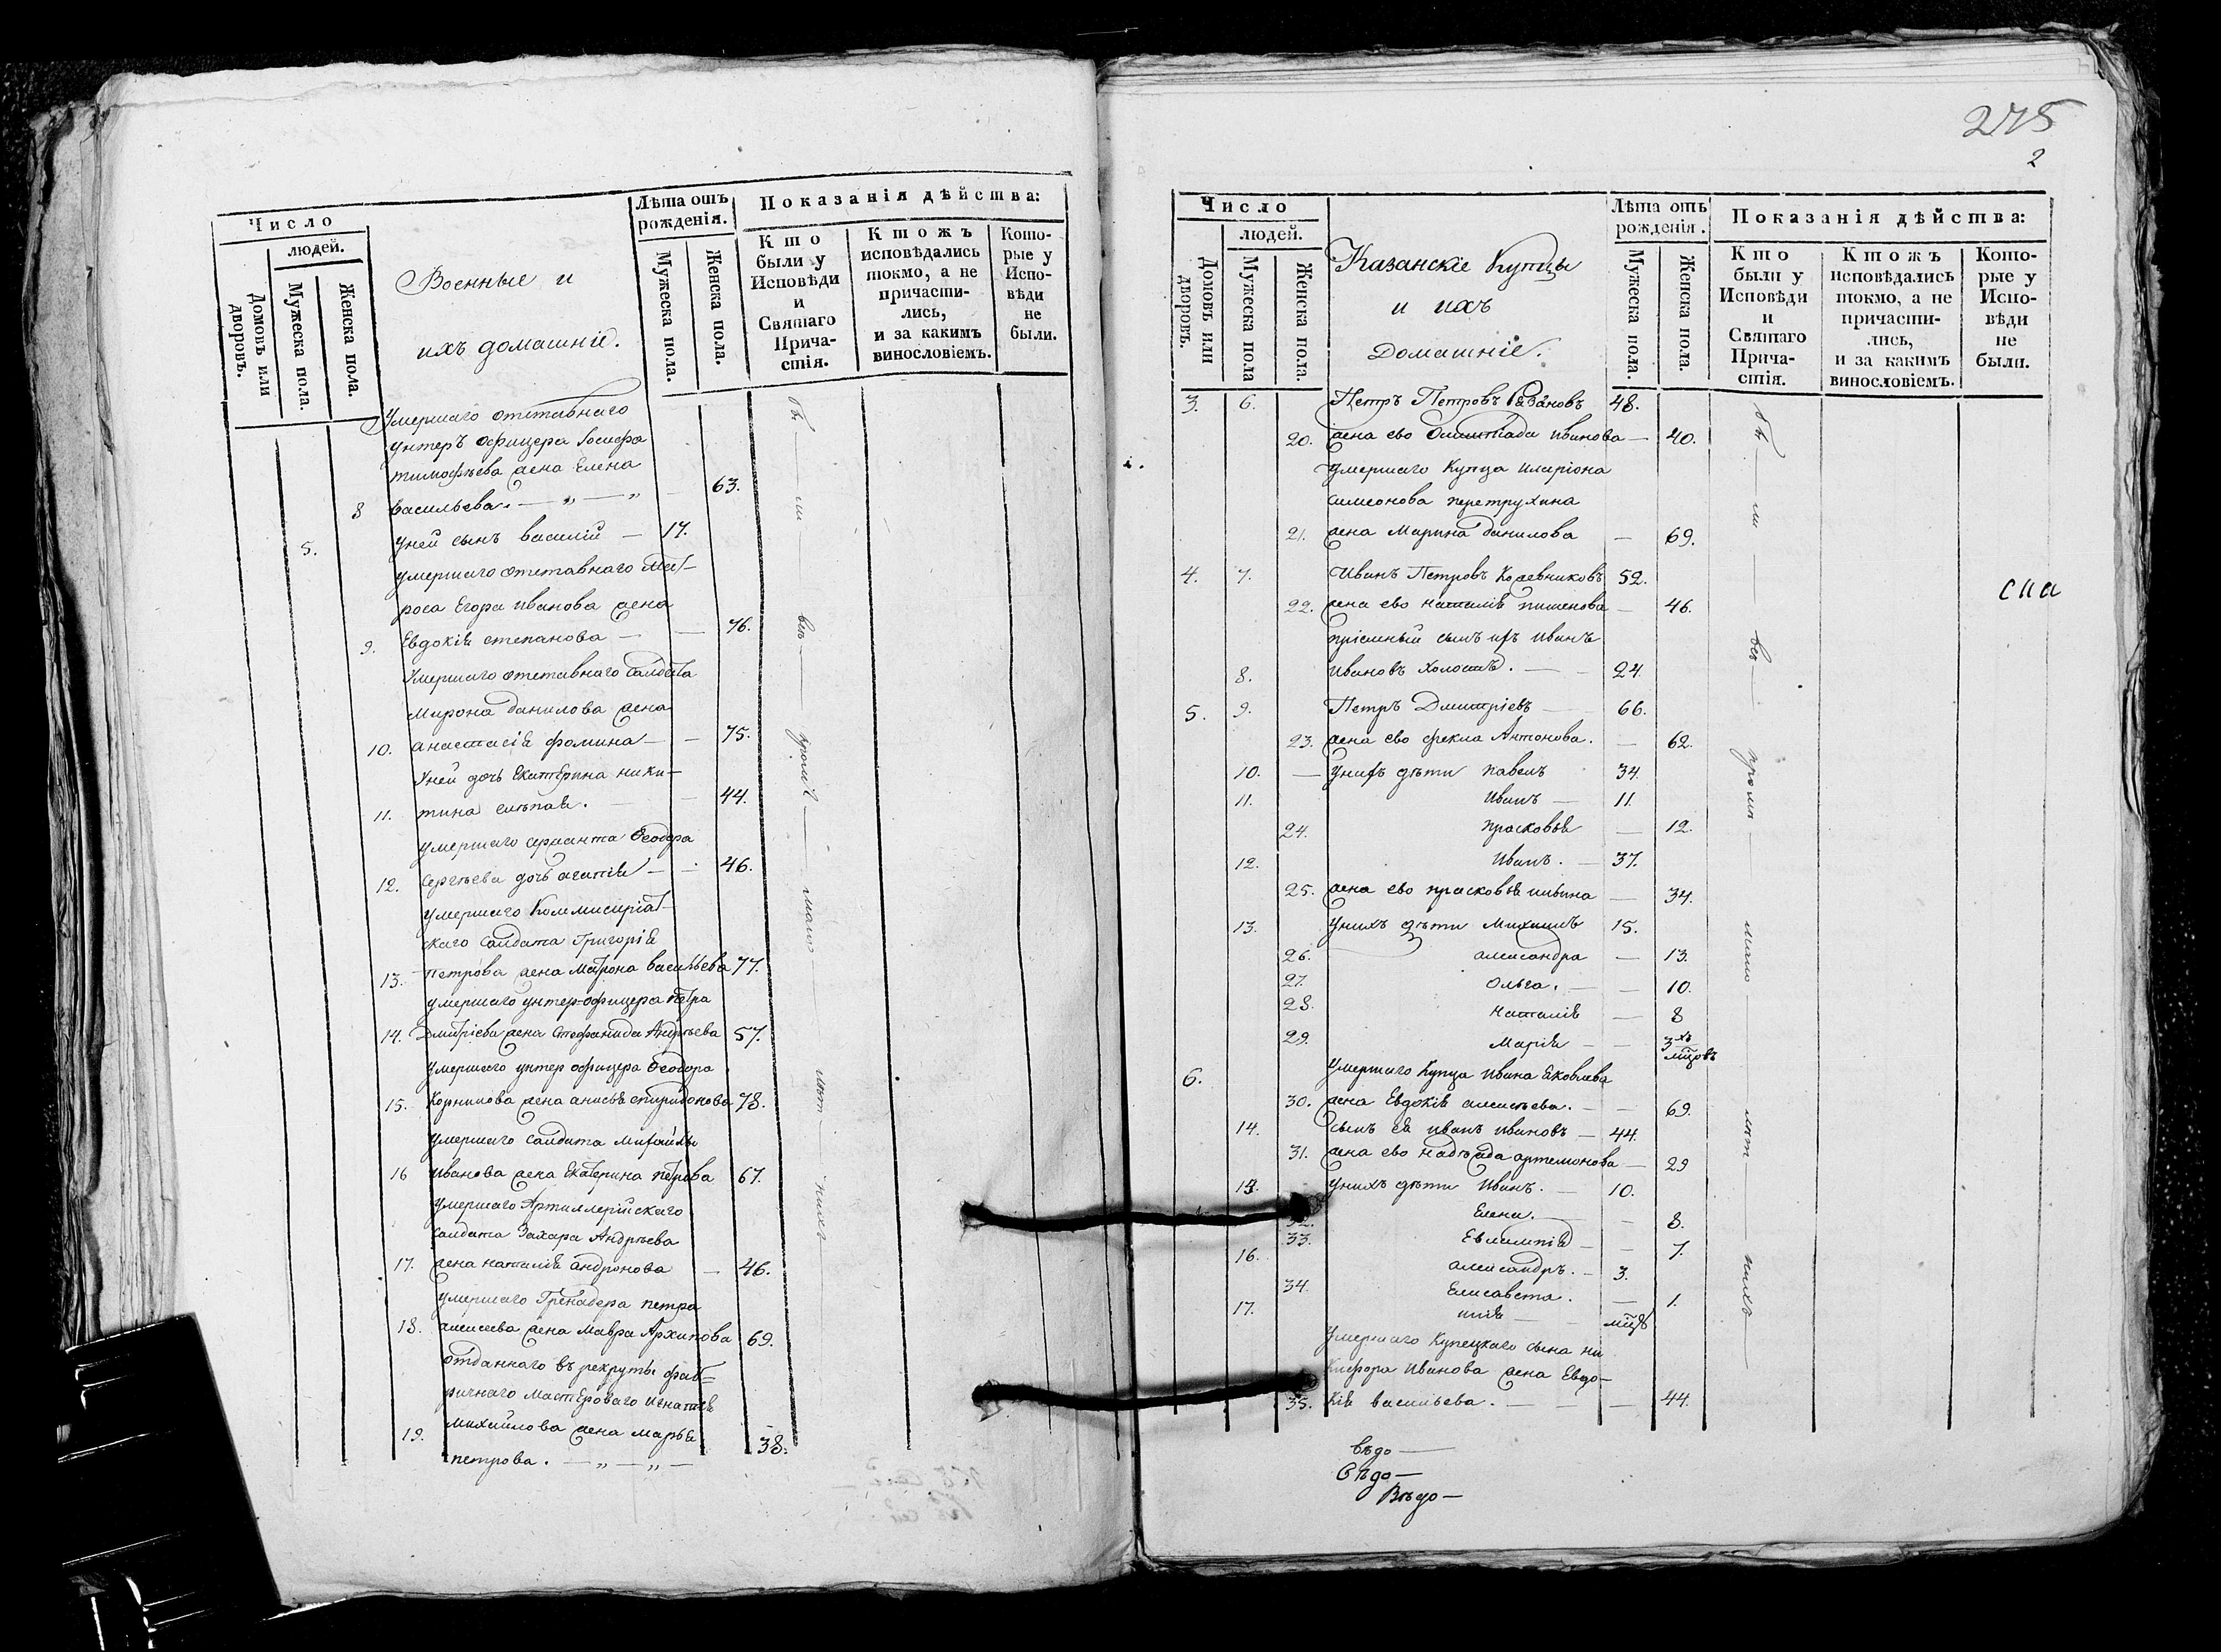 Число
людей.
Домовъ или дворовъ.
Мужеска пола.
Женска пола.
Военные и
ихъ домашніе.
Лѣта отъ рожденія.
Мужеска пола.
Женска пола.
Показанія дѣйства:
Кто были у Исповѣди и Святаго Причастія.
Ктожъ исповѣдались токмо, а не причастились, и за какимъ винословіемъ.
Которые у Исповѣди не были.
Умершаго отставнаго
унтеръ офицера Іосифа
тимофѣева жена Елена
8 васильева. — „ — „ — 63.
5. Уней сынъ василій — 17.
умершаго отставнаго мат-
роса Егора иванова жена
9. Евдокія степанова — — 76.
Умершаго отставнаго салдата
Мирона данилова жена
10. анастасія фомина — — 75.
Уней дочь Екатерина ники-
11. тина слѣпая. — — 44.
умершаго сержанта Ѳеодора
12. Сергѣева дочь агапія — — 46.
умершаго Коммисаріат-
скаго салдата Григорія
13. петрова жена Матрона васильева 77.
умершаго унтер-офицера петра
14. Дмитріева жена Стефанида Андрѣева 57.
Умершаго унтер офицера Ѳеодора
15. Корнилова жена анисья спиридонова 78.
Умершаго салдата михайлы
16 иванова жена Екатерина петрова 67.
Умершаго Артиллерійскаго
салдата Захара Андрѣева
17. жена наталія андронова — 46.
умершаго Гренадера петра
18. алексеева жена мавра Архипова 69.
отданнаго въ рекруты фаб=
ричнаго мастероваго игнатія
19. михайлова жена марья 38.
петрова. — „ — „ —
бы — ли — всѣ — кромѣ — мало — лѣт — нихъ
275
2
Число
людей.
Домовъ или дворовъ.
Мужеска пола
Женска пола.
Казанскіе Купцы
и ихъ
Домашніе.
Лѣта отъ рожденія.
Мужеска пола.
Женска пола.
Показанія дѣйства:
Кто были у Исповѣди и Святаго Причастія.
Ктожъ исповѣдались токмо, а не причастились, и за какимъ винословіемъ.
Которые у Исповѣди не были.
3. 6. Петръ Петровъ Рязановъ 48.
20. жена ево Олимпіада иванова — 40.
умершаго Купца иларіона
симеонова перетрухина
21. жена Марина данилова — 69.
4. 7. Иванъ Петровъ Кожевниковъ 52.
22. жена ево наталія пименова — 46.
пріемный сынъ ихъ иванъ
8. ивановъ холостъ. — — 24.
5. 9. Петръ Дмитріевъ — 66.
23. жена ево фекла Антонова. — 62.
10. — Унихъ дѣти павелъ 34.
11. иванъ — 11.
24. прасковья — 12.
12. иванъ. — 37.
25. жена ево прасковья ильина — 34.
13. Унихъ дѣти михаилъ 15.
26. александра — 13.
27. ольга. — — 10.
28. наталія — 8
29. марія — — 3хъ мцовъ
6. Умершаго Купца ивана яковлева
30. жена Евдокія алексѣева. — — 69.
14. сынъ ея иванъ ивановъ — 44.
31. жена ево надѣжда артемонова — 29
15. Унихъ дѣти иванъ. — 10.
32. Елена. — — 8.
33. Евлампія — — 7.
16. александръ. — 3.
34. Елисавета. — 1.
17. илія — — мцъ
Умершаго Купецкаго сына ни
кифора иванова жена Евдо-
35. кія васильева. — — — 44.
бы — ли — всѣ — кромѣ — мало — лѣт — нихъ —
спа
Вѣдо —
Вѣдо —
Вѣдо —